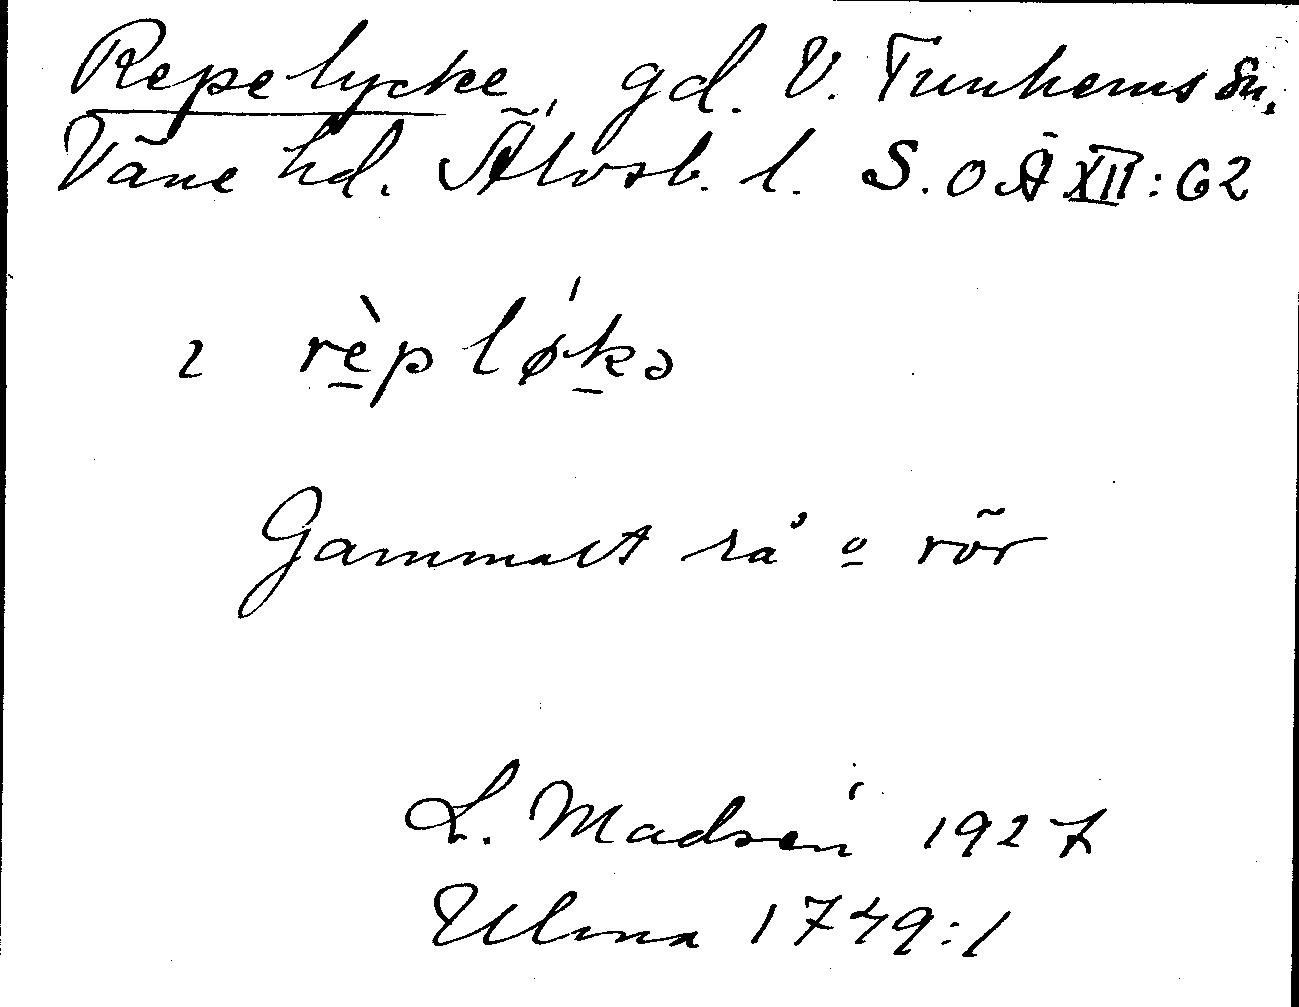 Repelycke, gd. V. Tunhems sn.
Väne hd. Älvsb. l. S.O.Ä XII:62
2 rèpløkə
Gammalt rå o rör
L. Madsén 1927
Ulma 1749:1